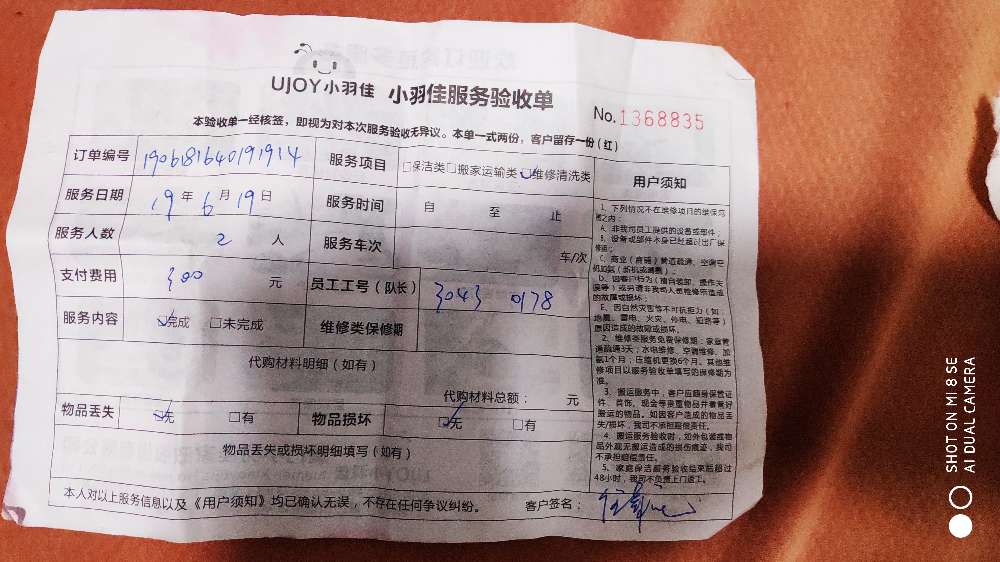 UJOY小羽佳 小羽佳服务验收单
No.1368835
本验收单一经核签，即视为对本次服务验收无异议。本单一式两份，客户留存一份（红）
订单编号 190618164019191914 服务项目 □保洁类□搬家运输类☑维修清洗类
服务日期 19年6月19日 服务时间 自 至 止
服务人数 2 人 服务车次 车/次
支付费用 300 元 员工工号（队长） 3043 0178
服务内容 ☑完成 □未完成 维修类保修期
代购材料明细（如有）
代购材料总额： 元
物品丢失 ☑无 □有 物品损坏 ☑无 □有
物品丢失或损坏明细填写（如有）
本人对以上服务信息以及《用户须知》均已确认无误，不存在任何争议纠纷。 客户签名：
用户须知
1、下列情况不在维修项目的维保范
围之内：
A、非我司员工提供的设备或部件；
B、设备或部件本身已经超过出厂保
修期；
C、商业（店铺）管道疏通、空调主
机加氨（新机或满氨）
D、因客户行为（擅自装卸、操作失
误等）或另请非我司人员维修所造成
的故障或损坏；
E、因自然灾害等不可抗拒力（如：
地震、雷电、火灾、停电、短路等）
原因造成的故障或损坏。
2、维修类服务免费保修期：家庭管
道疏通3天；水电维修、空调维修、加
氨1个月；压缩机更换6个月。其他维
修项目以服务验收单填写的保修期为
准。
3、搬运服务中，客户应随身保管证
件、首饰、现金等贵重物品并看管好
搬运的物品。如因客户造成的物品丢
失/损坏，我司不承担赔偿责任。
4、搬运服务验收时，如外包装或物
品外观无搬运造成的损伤痕迹，我司
不承担赔偿责任。
5、家庭保洁服务验收结束后超过
48小时，我司不负责上门返工。
SHOT ON MI 8 SE
AI DUAL CAMERA